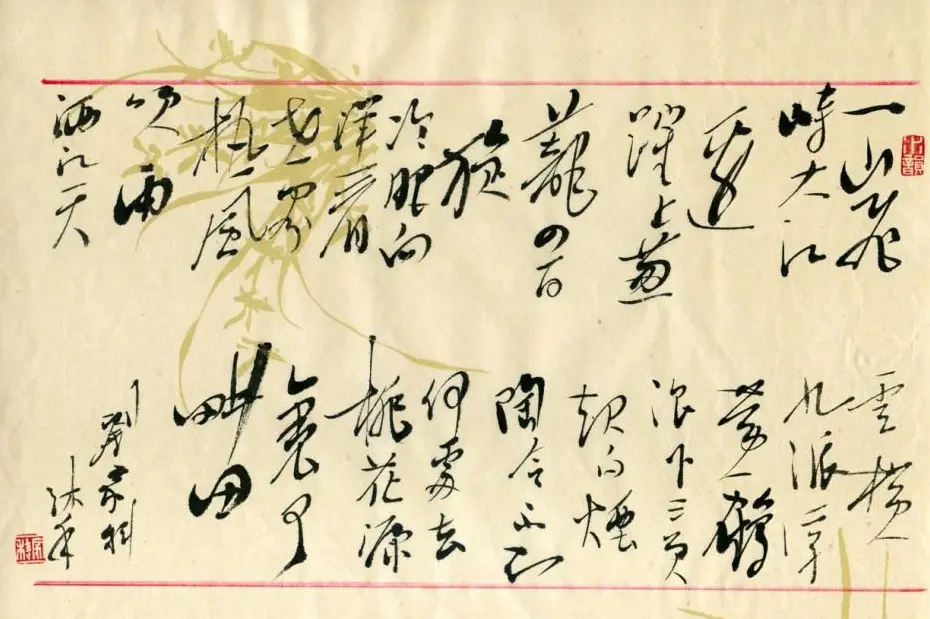 一山飛
峙大江
邊
躍上葱
蘢四百
旋
冷眼向
洋看
世界
熱風
吹雨
洒江天
雲橫
九派浮
黄鶴
浪下三吴
起白煙
陶令不知
何處去
桃花源
裏可
耕田
劉家科